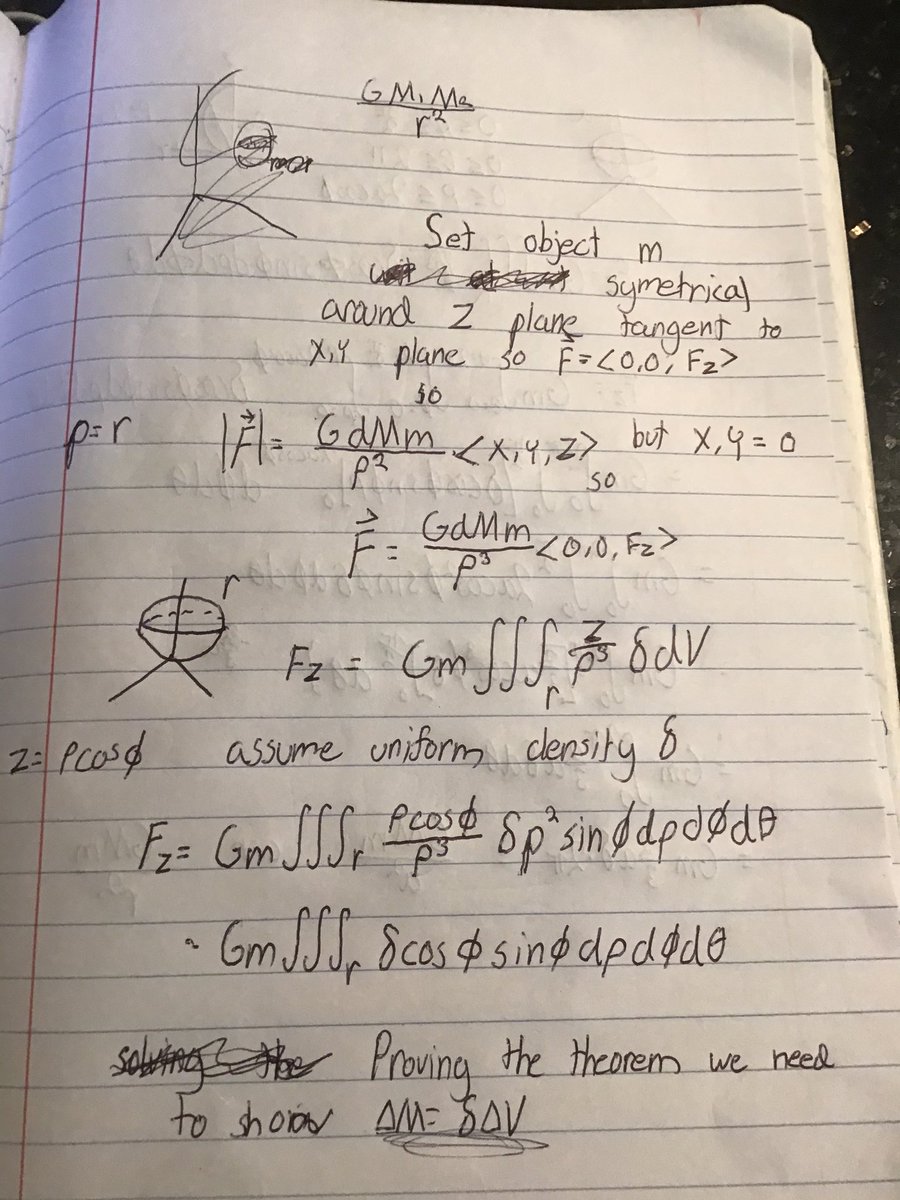 GM₁M₂/r²
Set object m
symetrical
around Z plane tangent to
X,Y plane so F⃗=<0,0,Fz>
so
ρ=r |F⃗|= GdMm/ρ² <X,Y,Z> but X,Y=0
so
F⃗= GdMm/ρ³ <0,0,Fz>
r
Fz = Gm∭r z/ρ³ δdV
z=ρcosϕ assume uniform density δ
Fz= Gm∭r ρcosϕ/ρ³ δρ²sinϕdρdϕdθ
= Gm∭r δcosϕsinϕdρdϕdθ
Proving the theorem we need
to show ΔM=δΔV